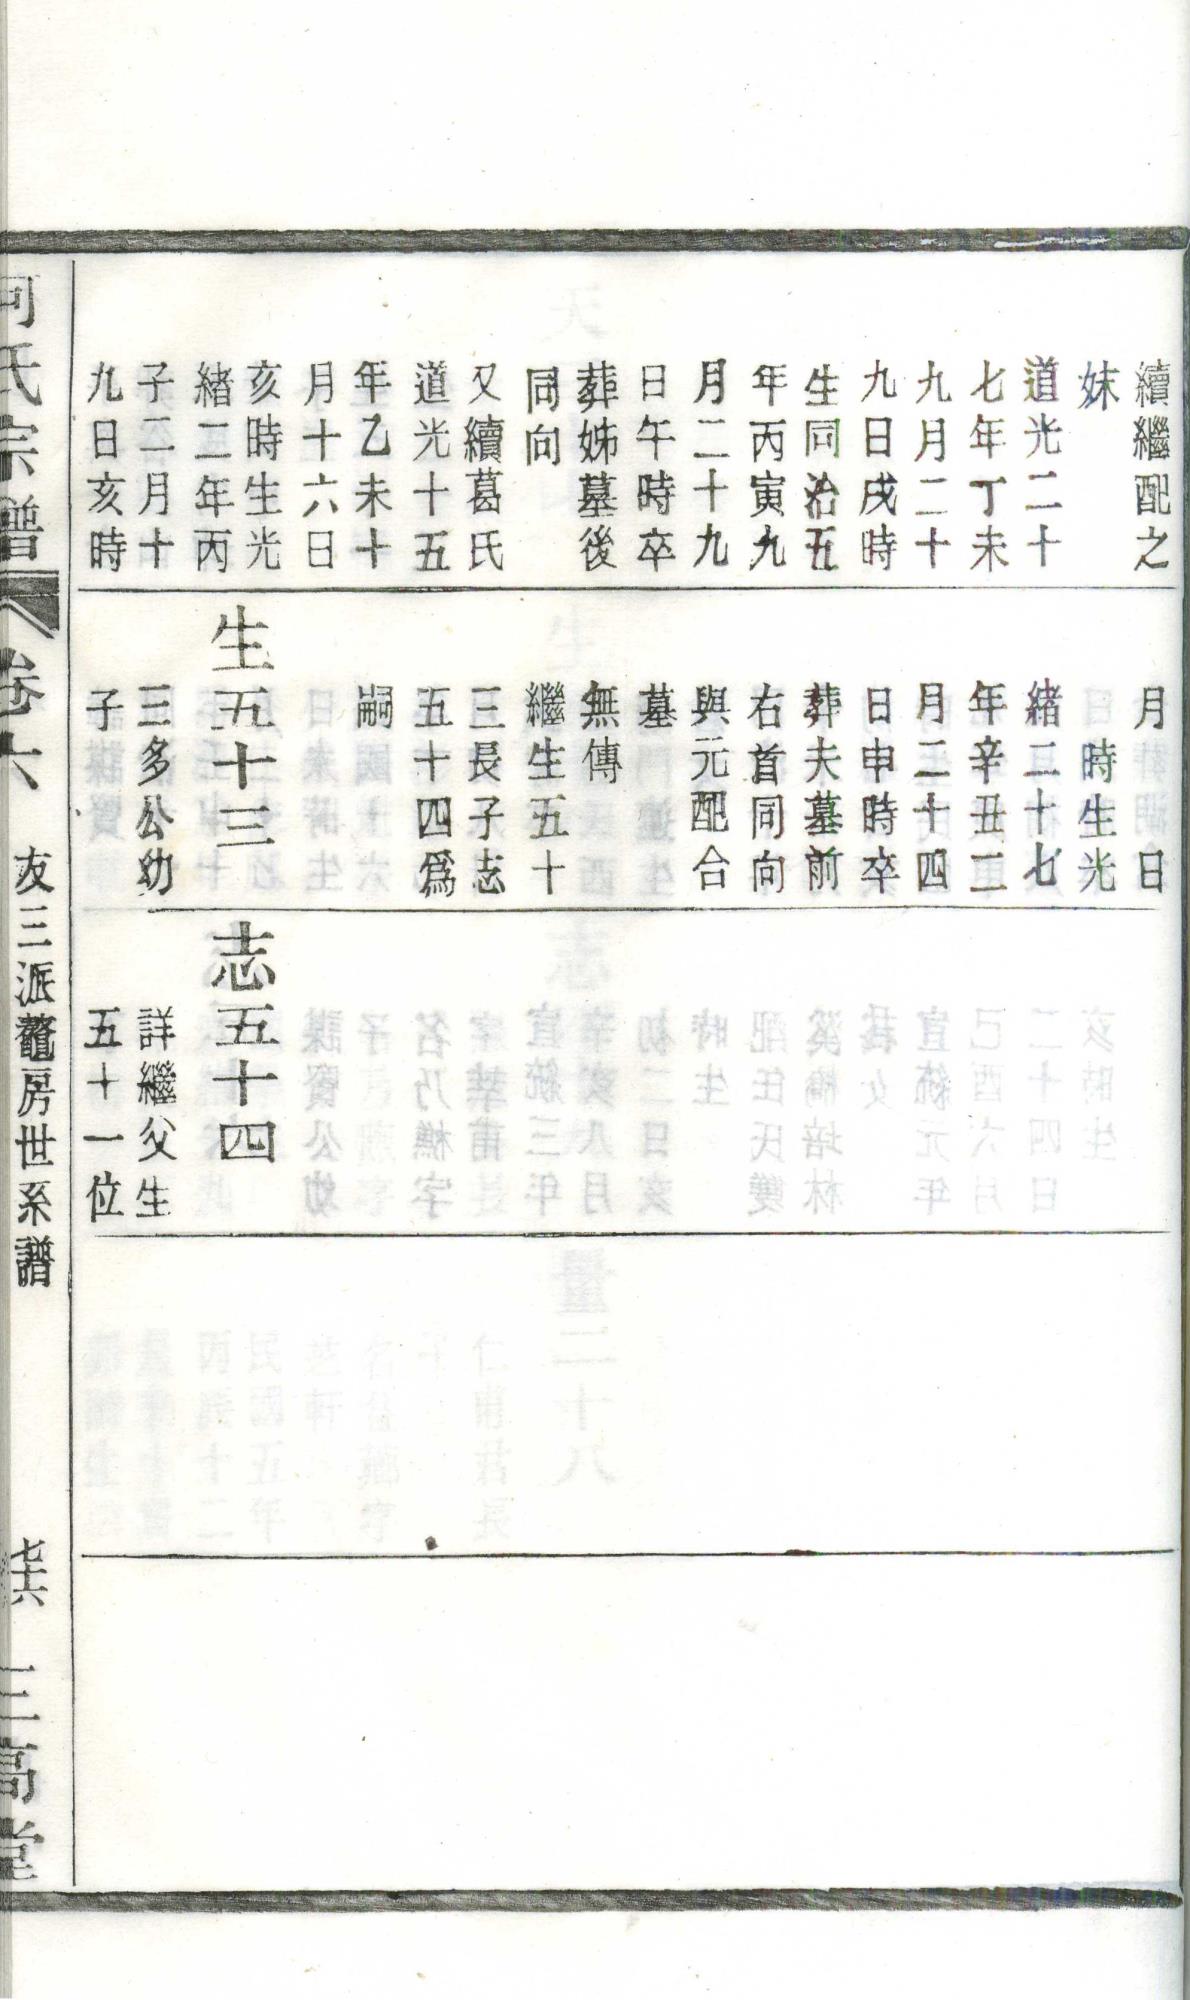 續繼配之
妹
道光二十
七年丁未
九月二十
九日戌時
生同治五
年丙寅九
月二十九
日午時卒
葬姊墓後
同向
又續葛氏
道光十五
年乙未十
月十六日
亥時生光
緒二年丙
子二月十
九日亥時
月　　日
時生光
緒二十七
年辛丑二
月二十四
日申時卒
葬夫墓前
右首同向
與元配合
墓
無傳
繼生五十
三長子志
五十四爲
嗣
生五十三
三多公幼
子
志五十四
詳繼父生
五十一位
何氏宗譜
卷六
友三派鼇房世系譜
七十六
三高堂